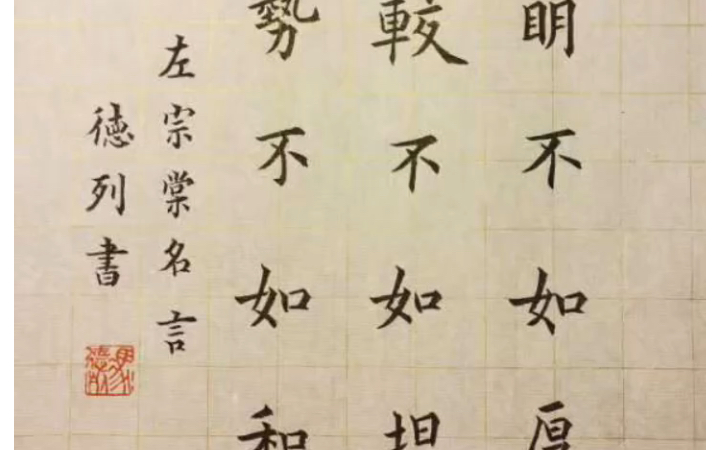 明不如厚
較不如坦
勢不如和
左宗棠名言
德列書